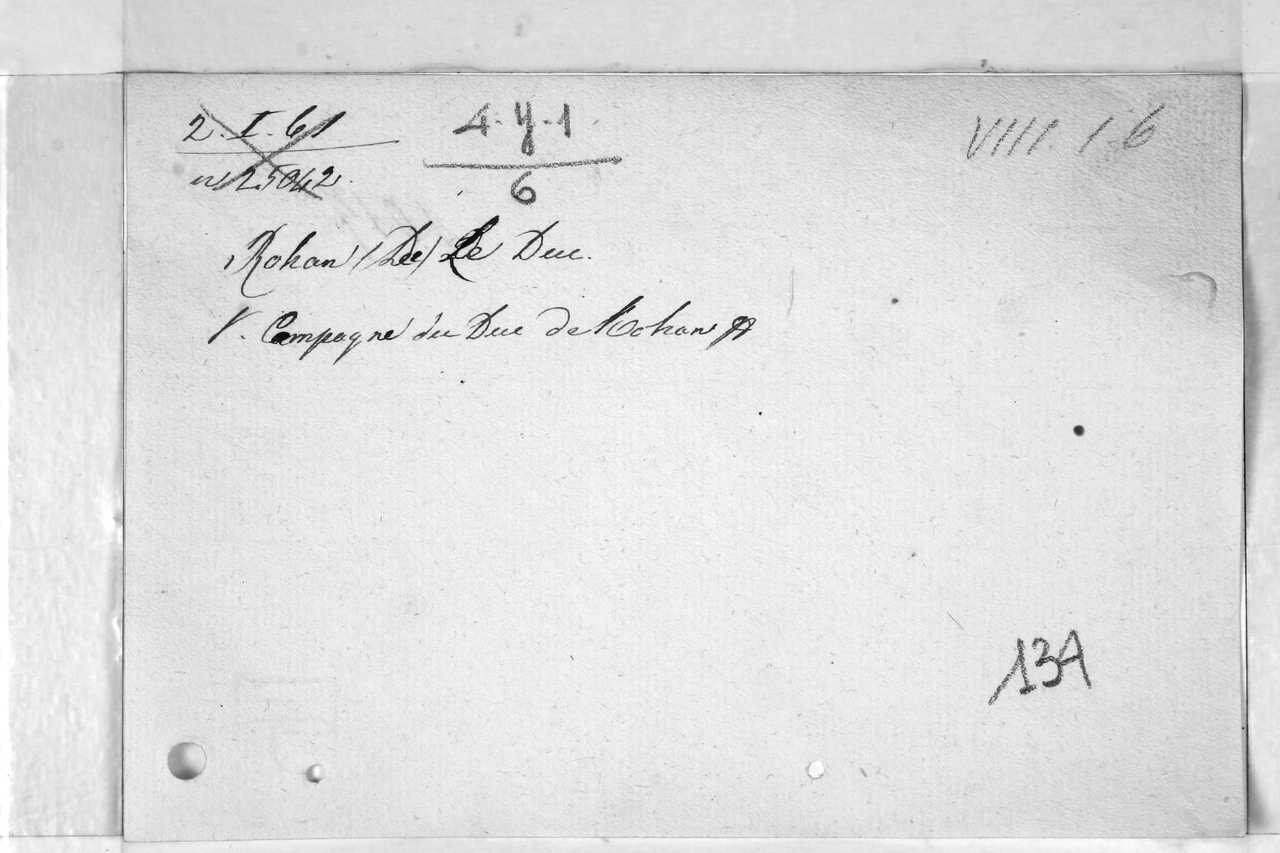 2. I. 61
n 25042
4. y. 1
6
VIII. 1. 6
Rohan (De) Le Duc.
V. Campagne du Duc de Rohan
134